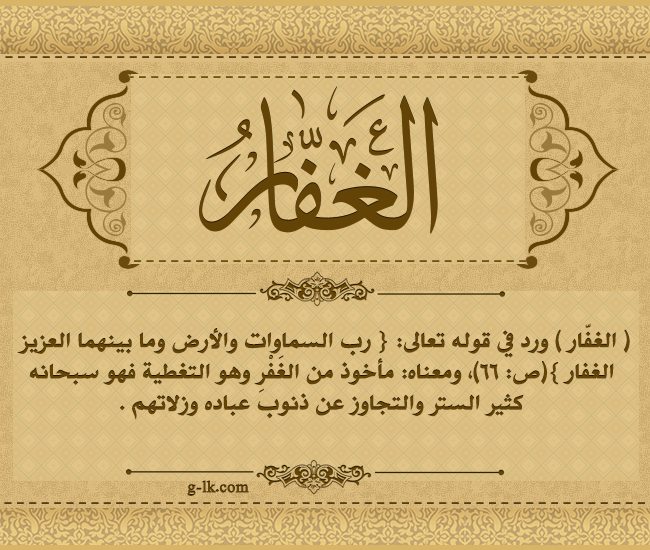 الغفّار
( الغفّار ) ورد في قوله تعالى: { رب السماوات والأرض وما بينهما العزيز
الغفار }(ص: ٦٦)، ومعناه: مأخوذ من الغَفْرِ وهو التغطية فهو سبحانه
كثير الستر والتجاوز عن ذنوب عباده وزلاتهم .
g-lk.com